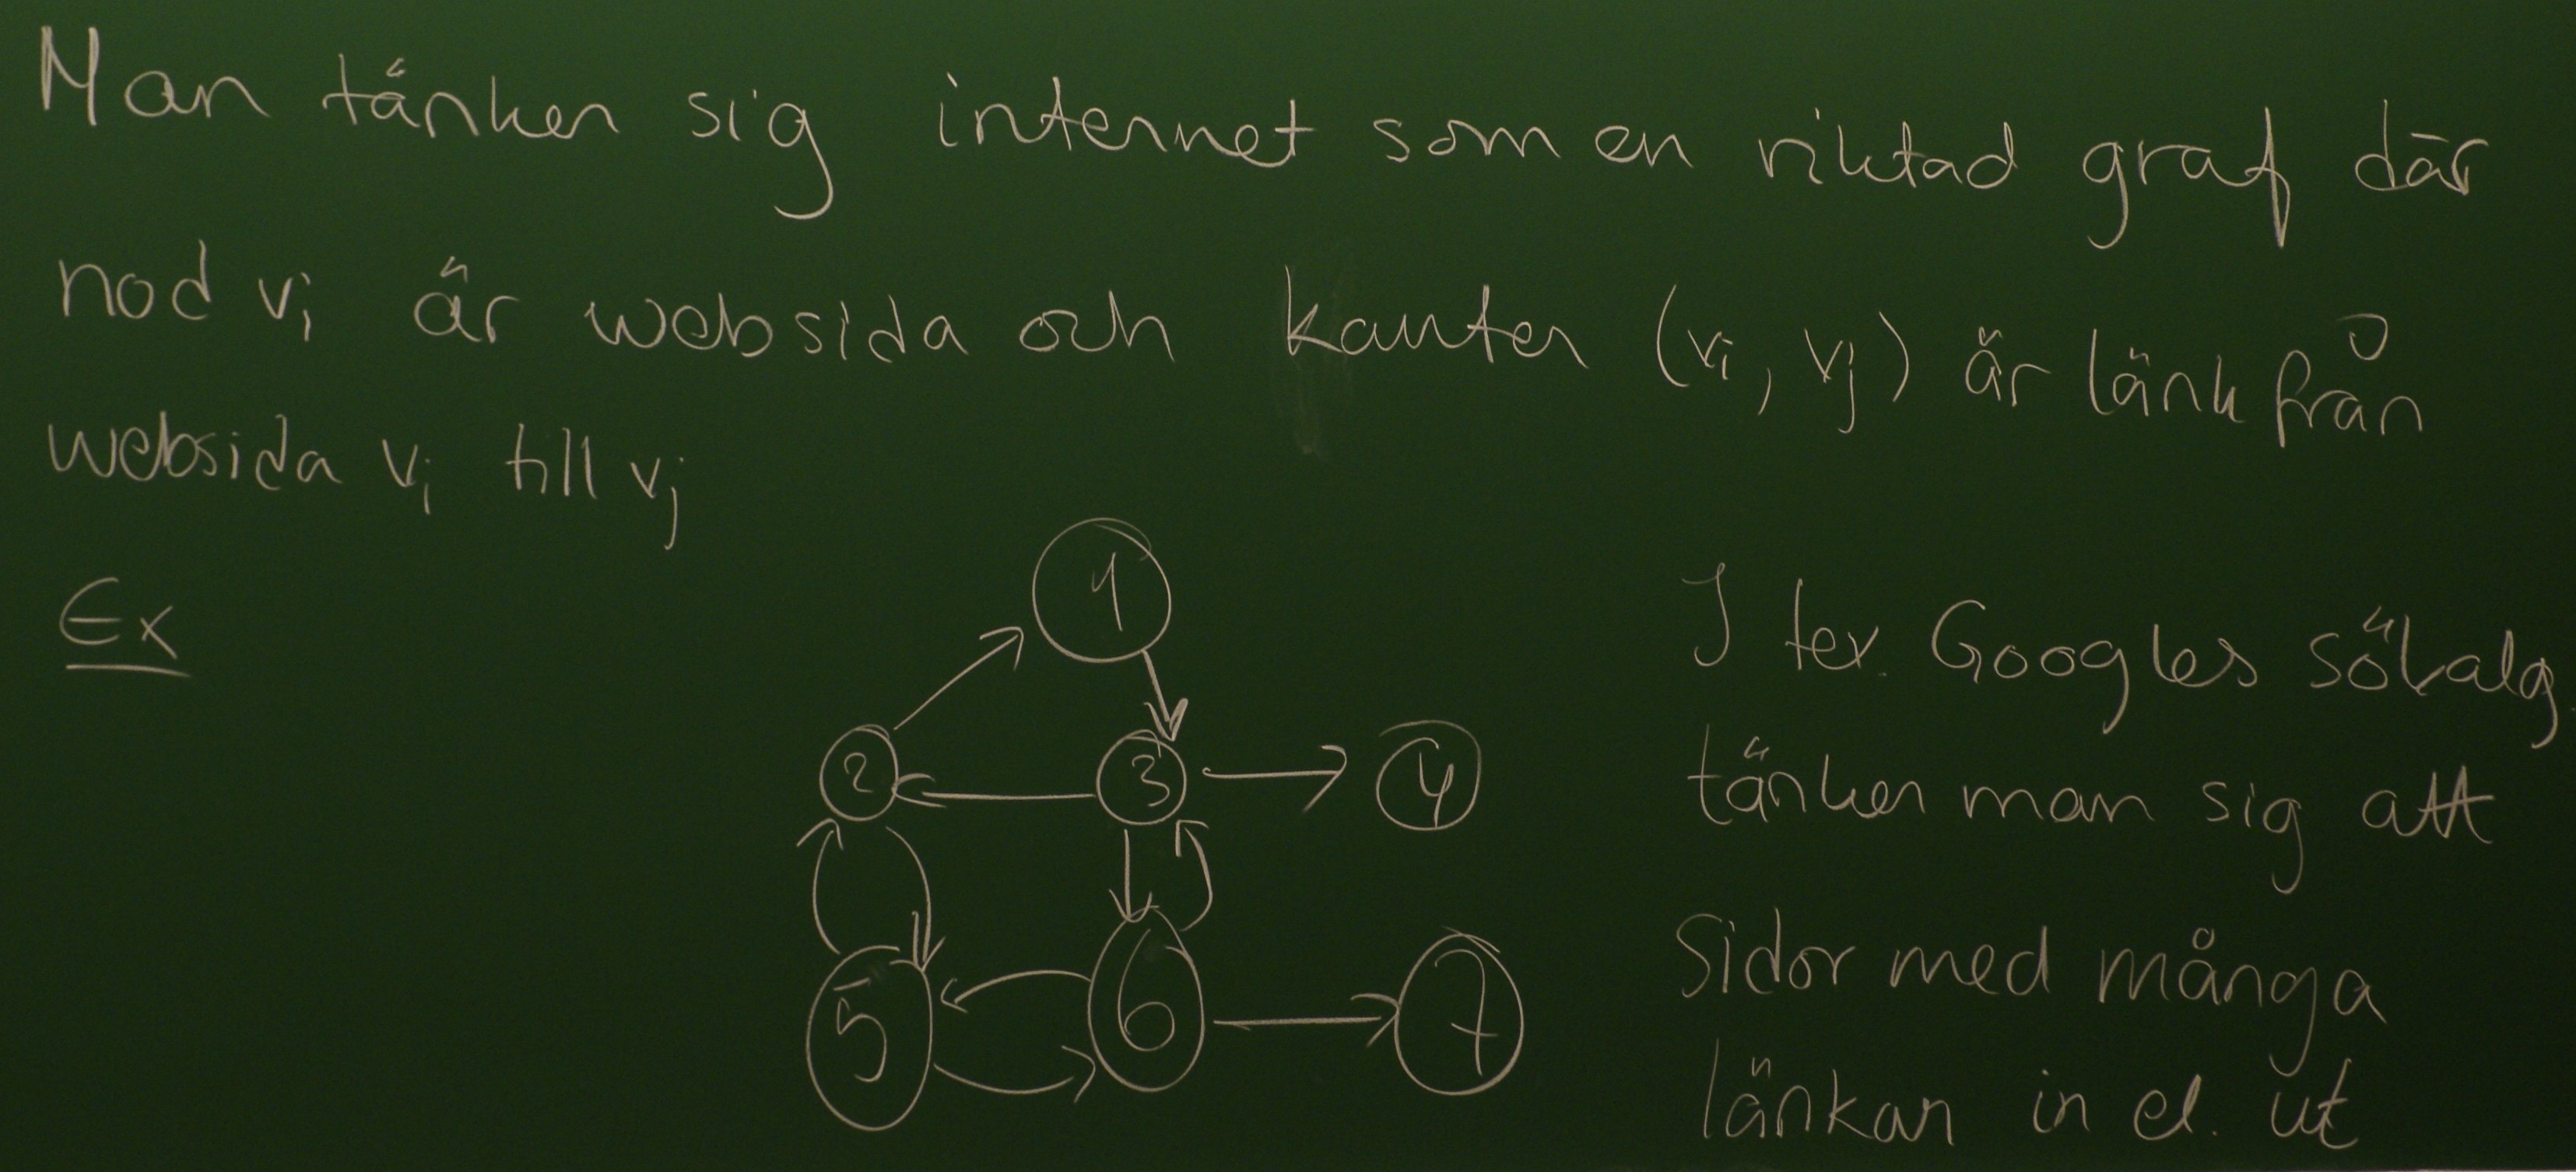 Man tänker sig internet som en riktad graf där
nod vi är websida och kanter (vi, vj) är länk från
websida vi till vj
Ex
1
2 3 4
5 6 7
I tex. Googles sökalg.
tänker man sig att
sidor med många
länkar in el. ut